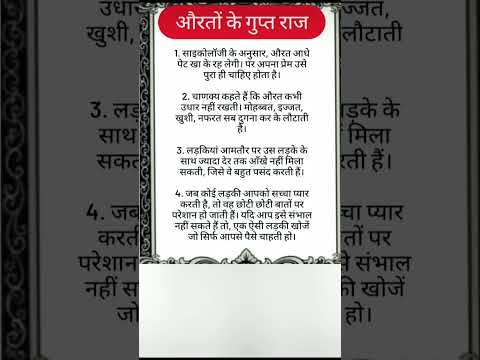 औरतों के गुप्त राज
1. साइकोलॉजी के अनुसार, औरत आधे
पेट खा के रह लेगी। पर अपना प्रेम उसे
पुरा ही चाहिए होता है।
2. चाणक्य कहते हैं कि औरत कभी
उधार नहीं रखती। मोहब्बत, इज्जत,
खुशी, नफरत सब दुगना कर के लौटाती
हैं।
3. लड़कियां आमतौर पर उस लड़के के
साथ ज्यादा देर तक आँखे नहीं मिला
सकती, जिसे वे बहुत पसंद करती हैं।
4. जब कोई लड़की आपको सच्चा प्यार
करती है, तो वह छोटी छोटी बातों पर
परेशान हो जाती हैं। यदि आप इसे संभाल
नहीं सकते हैं तो, एक ऐसी लड़की खोजें
जो सिर्फ आपसे पैसे चाहती हो।